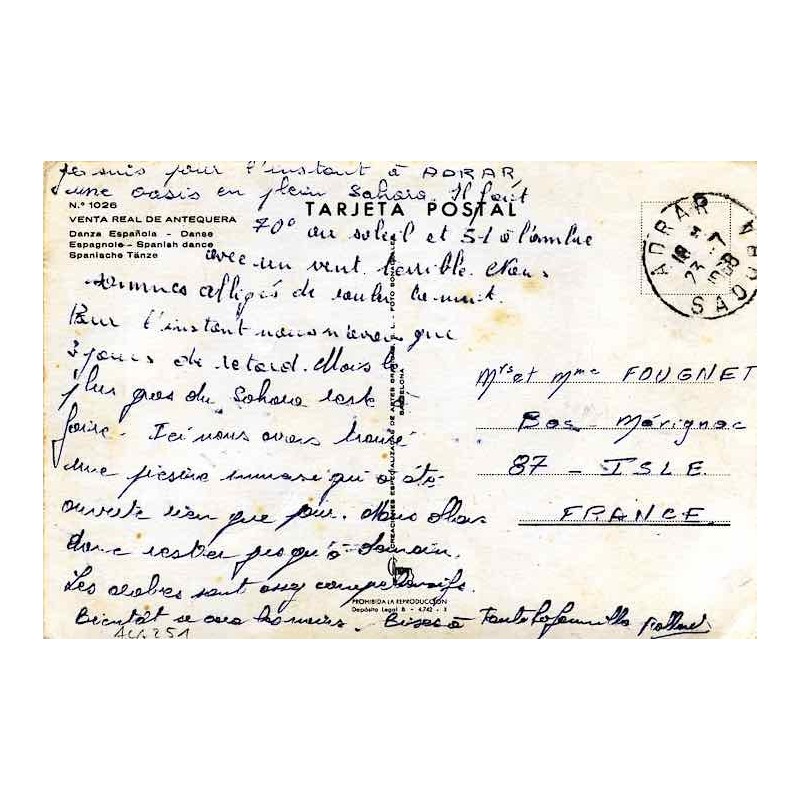 Je suis pour l'instant à ADRAR
une oasis en plein Sahara. Il fait
70° au soleil et 51 à l'ombre
avec un vent terrible. Nous
sommes obligés de rouler la nuit.
Pour l'instant nous n'avons que
3 jours de retard. Mais le
plus gros du Sahara reste
faire. Ici nous avons trouvé
une piscine immense qui a été
ouverte rien que pour. Nous allons
donc rester jusqu'à demain.
Les arabes sont assez compréhensifs.
Bientôt de mes nouvelles. Bises à toute la famille
ALG 251
N.º 1026
VENTA REAL DE ANTEQUERA
Danza Española - Danse
Espagnole - Spanish dance
Spanische Tänze
TARJETA POSTAL
CREACIONES ESPECIALIZADAS DE ARTES GRAFICAS, S. L. - FOTO
BARCELONA
PROHIBIDA LA REPRODUCCION
Depósito Legal B - 4.742 - 3
ADRAR
18 H
23 - 7
1968
SAOURA
Mrs et Mme FOUGNET
Bos - Mérignac
87 - ISLE
FRANCE